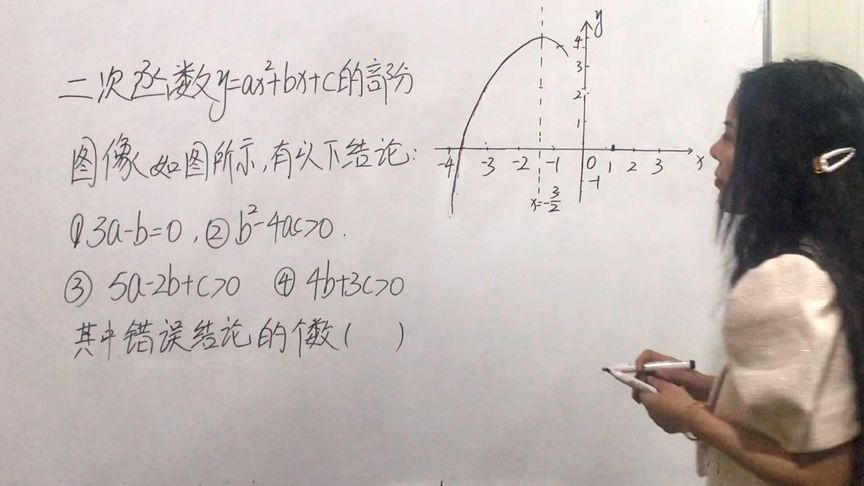 二次函数y=ax²+bx+c的部分
图像如图所示,有以下结论:
①3a-b=0,②b²-4ac>0.
③ 5a-2b+c>0 ④ 4b+3c>0
其中错误结论的个数( )
y
4
3
2
1
-4 -3 -2 -1 0 1 2 3 x
-1
x=-3/2